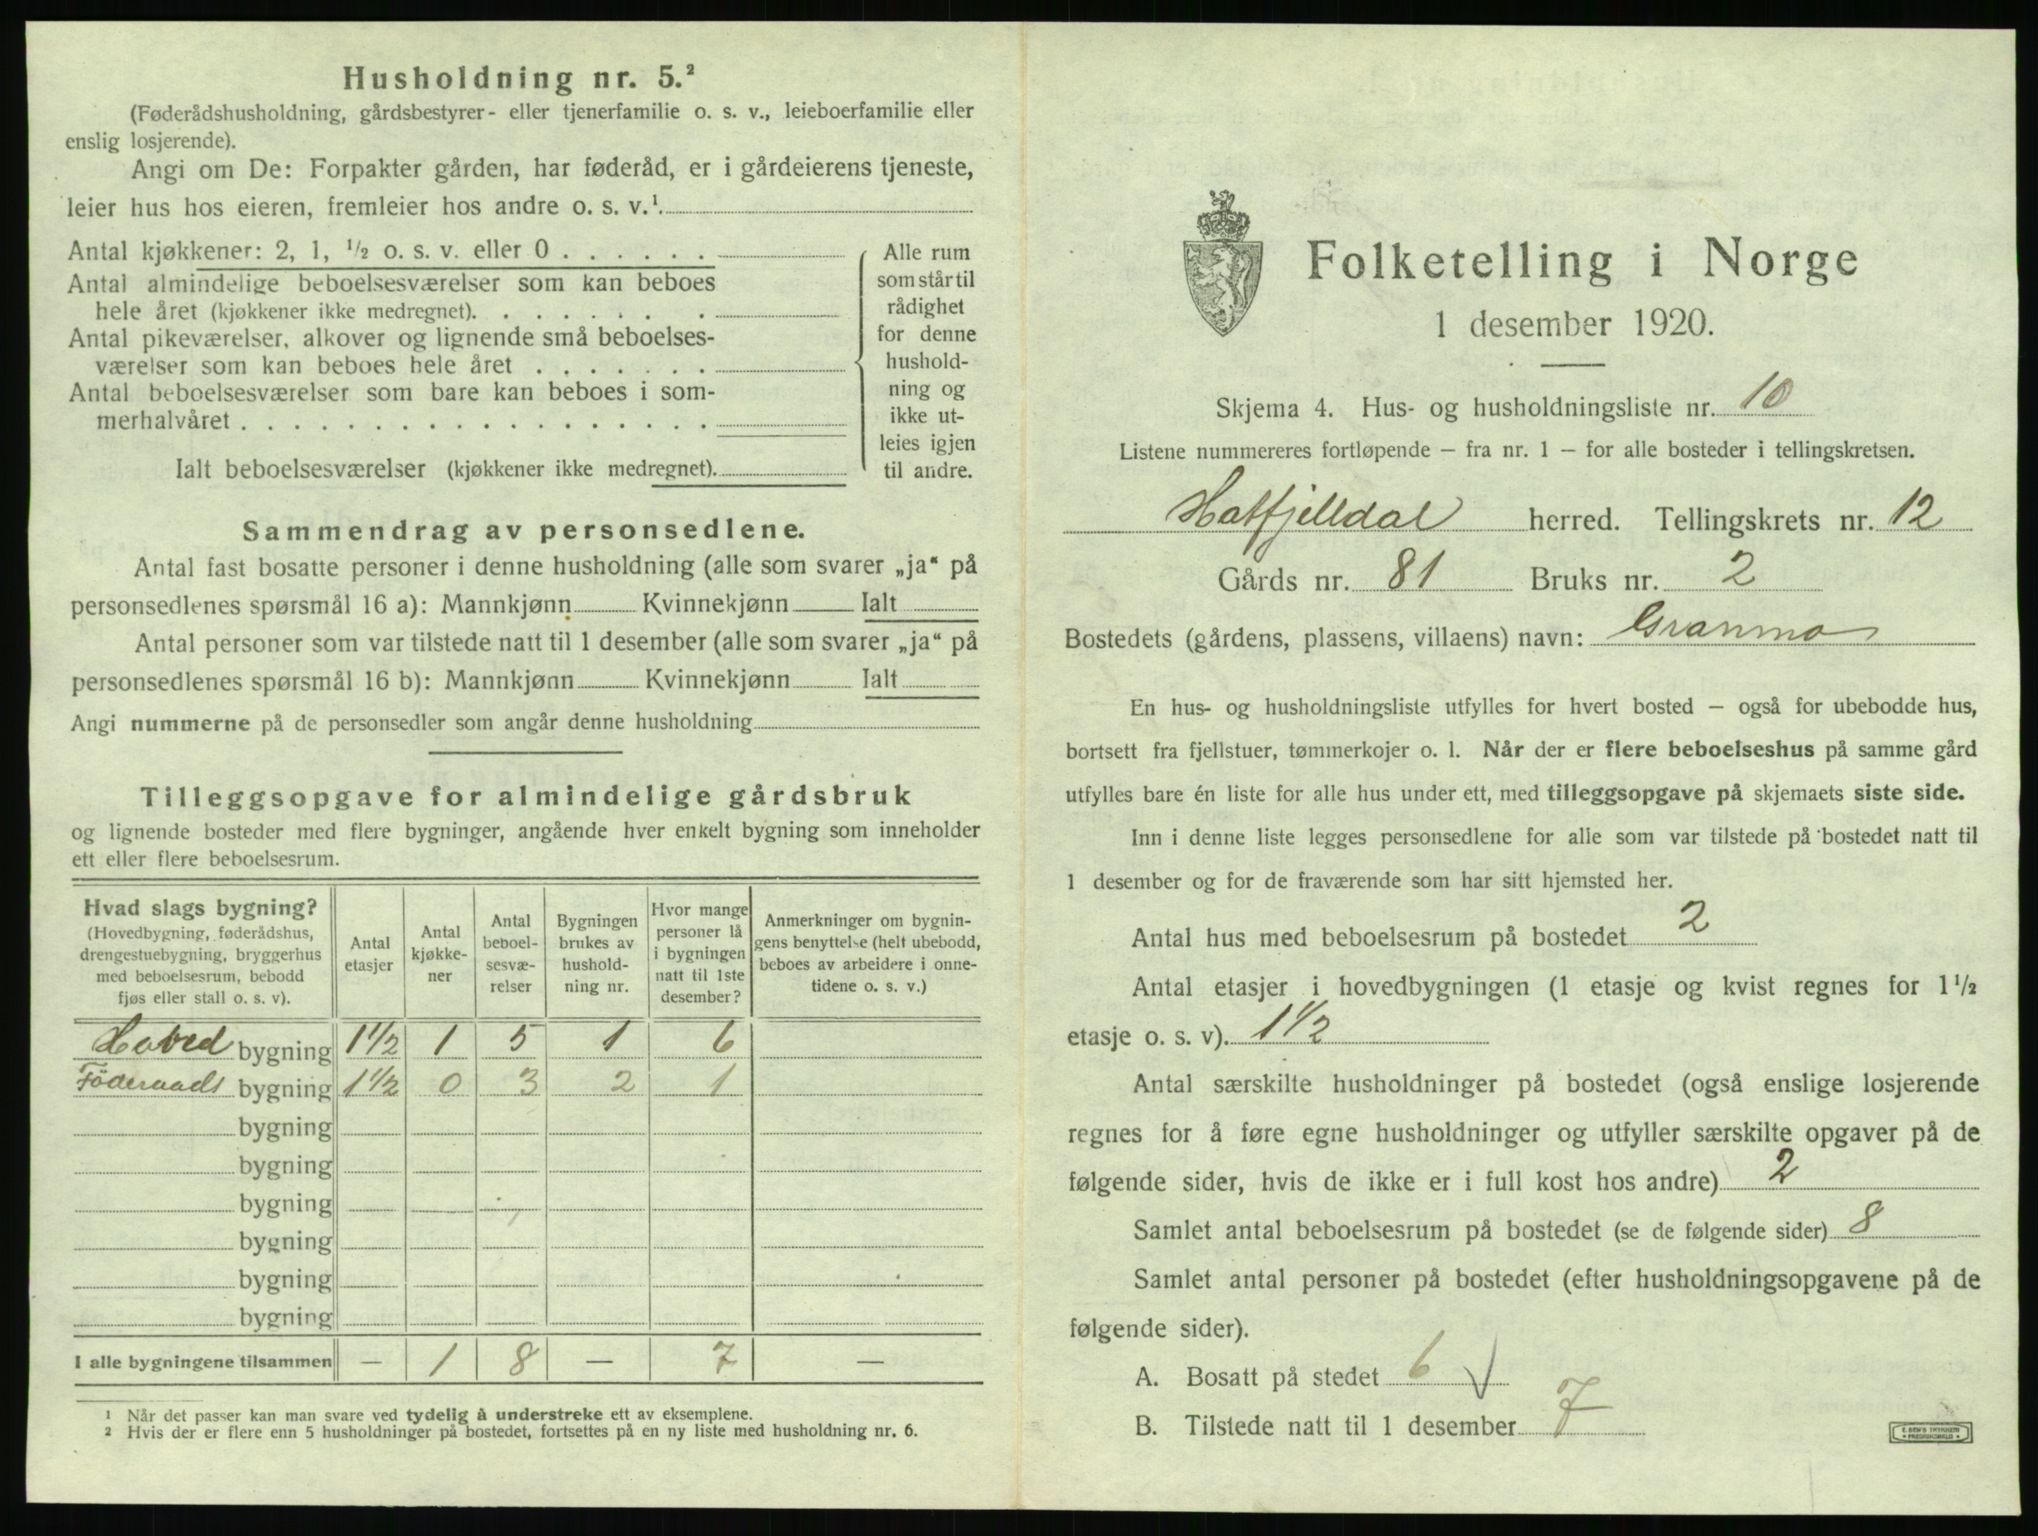 Husholdning nr. 5.²
(Føderådshusholdning, gårdsbestyrer- eller tjenerfamilie o. s. v., leieboerfamilie eller
enslig losjerende).
Angi om De: Forpakter gården, har føderåd, er i gårdeierens tjeneste,
leier hus hos eieren, fremleier hos andre o. s. v.¹.
Antal kjøkkener: 2, 1, ½ o. s. v. eller 0 . . . . . .
Antal almindelige beboelsesværelser som kan beboes
hele året (kjøkkener ikke medregnet). . . . . . . .
Antal pikeværelser, alkover og lignende små beboelses-
værelser som kan beboes hele året . . . . . . .
Antal beboelsesværelser som bare kan beboes i som-
merhalvåret . . . . . . . . . . . . . . . . . .
Ialt beboelsesværelser (kjøkkener ikke medregnet).
Alle rum
som står til
rådighet
for denne
hushold-
ning og
ikke ut-
leies igjen
til andre.
Sammendrag av personsedlene.
Antal fast bosatte personer i denne husholdning (alle som svarer „ja“ på
personsedlenes spørsmål 16 a): Mannkjønn Kvinnekjønn Ialt
Antal personer som var tilstede natt til 1 desember (alle som svarer „ja“ på
personsedlenes spørsmål 16 b): Mannkjønn Kvinnekjønn Ialt
Angi nummerne på de personsedler som angår denne husholdning
Tilleggsopgave for almindelige gårdsbruk
og lignende bosteder med flere bygninger, angående hver enkelt bygning som inneholder
ett eller flere beboelsesrum.
Hvad slags bygning?
(Hovedbygning, føderådshus,
drengestuebygning, bryggerhus
med beboelsesrum, bebodd
fjøs eller stall o. s. v).
Antal
etasjer
Antal
kjøkke-
ner
Antal
beboel-
sesvæ-
relser
Bygningen
brukes av
hushold-
ning nr.
Hvor mange
personer lå
i bygningen
natt til 1ste
desember?
Anmerkninger om bygnin-
gens benyttelse (helt ubebodd,
beboes av arbeidere i onne-
tidene o. s. v.)
Hoved bygning 1½ 1 5 1 6
Föderaads bygning 1½ 0 3 2 1
bygning
bygning
bygning
bygning
bygning
bygning
I alle bygningene tilsammen — 1 8 — 7 —
¹ Når det passer kan man svare ved tydelig å understreke ett av eksemplene.
² Hvis der er flere enn 5 husholdninger på bostedet, fortsettes på en ny liste med husholdning nr. 6.
Folketelling i Norge
1 desember 1920.
Skjema 4. Hus- og husholdningsliste nr. 10
Listene nummereres fortløpende — fra nr. 1 — for alle bosteder i tellingskretsen.
Hatfjelldal herred. Tellingskrets nr. 12
Gårds nr. 81 Bruks nr. 2
Bostedets (gårdens, plassens, villaens) navn: Granmo
En hus- og husholdningsliste utfylles for hvert bosted — også for ubebodde hus,
bortsett fra fjellstuer, tømmerkojer o. l. Når der er flere beboelseshus på samme gård
utfylles bare én liste for alle hus under ett, med tilleggsopgave på skjemaets siste side.
Inn i denne liste legges personsedlene for alle som var tilstede på bostedet natt til
1 desember og for de fraværende som har sitt hjemsted her.
Antal hus med beboelsesrum på bostedet 2
Antal etasjer i hovedbygningen (1 etasje og kvist regnes for 1½
etasje o. s. v). 1½
Antal særskilte husholdninger på bostedet (også enslige losjerende
regnes for å føre egne husholdninger og utfyller særskilte opgaver på de
følgende sider, hvis de ikke er i full kost hos andre) 2
Samlet antal beboelsesrum på bostedet (se de følgende sider) 8
Samlet antal personer på bostedet (efter husholdningsopgavene på de
følgende sider).
A. Bosatt på stedet 6 √
B. Tilstede natt til 1 desember 7